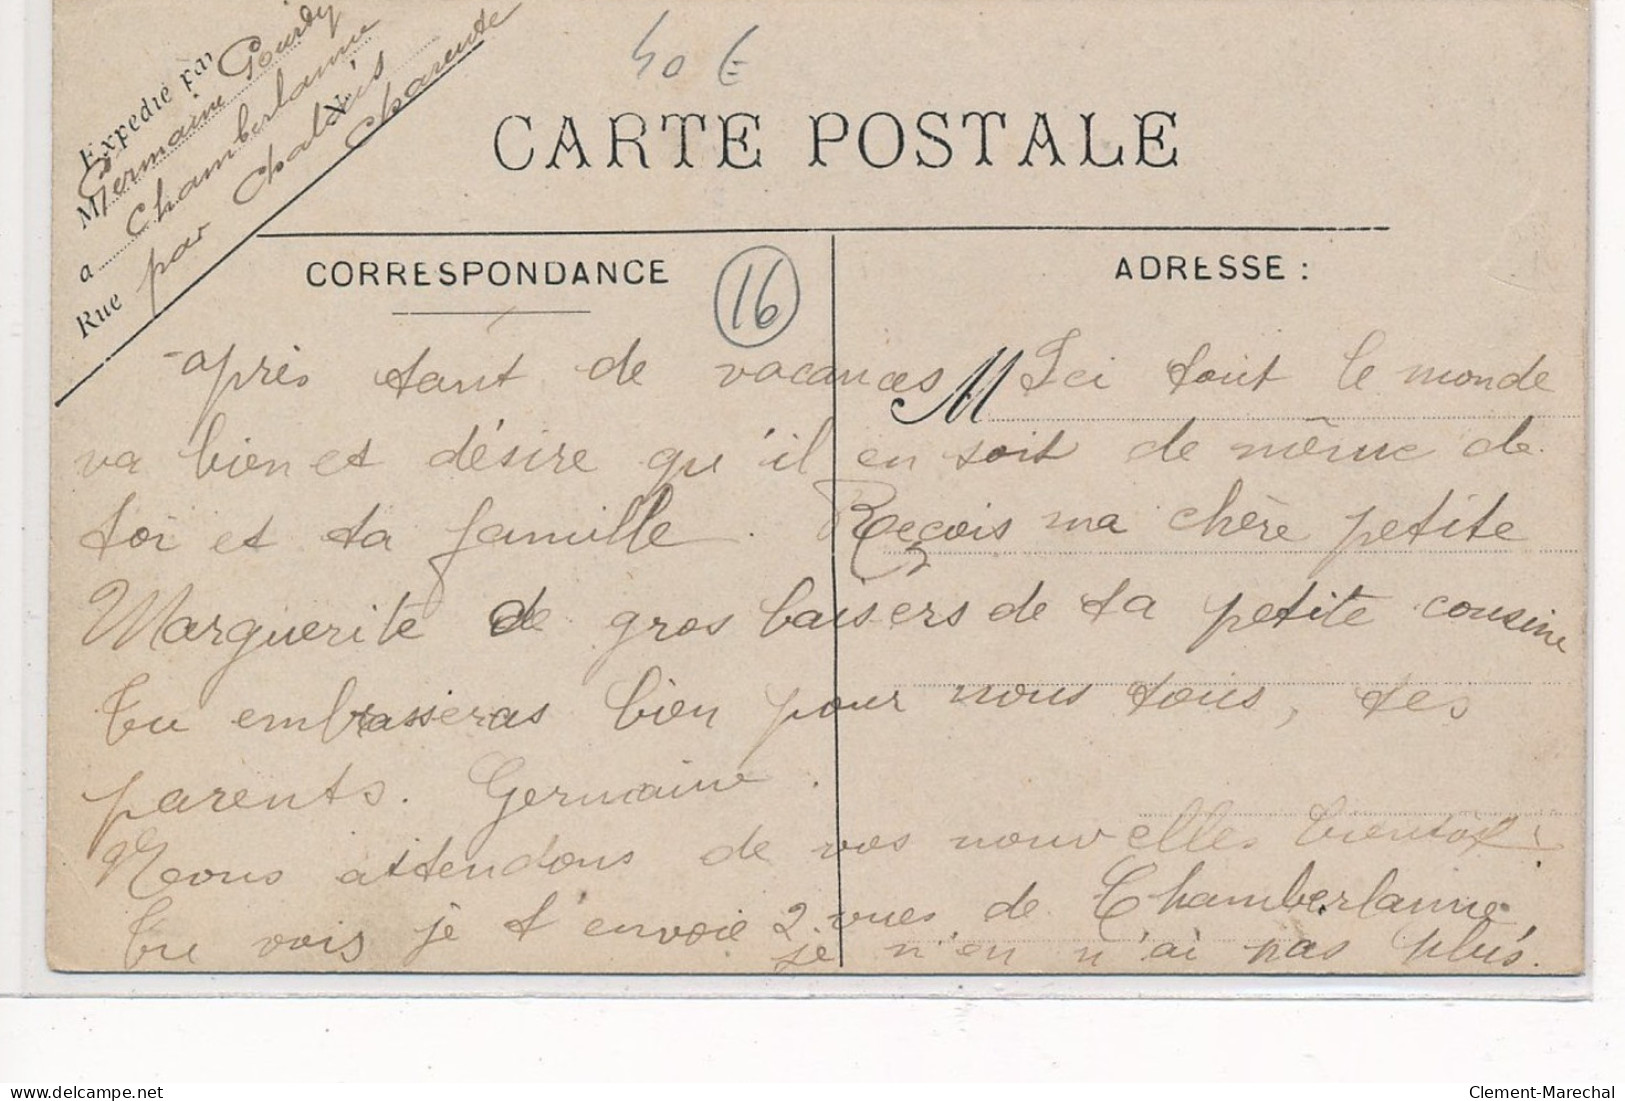 40 €
Expédié par
Germaine Gourdy
M
a Chamberlanne
Rue par Chalais N°
Charente
CARTE POSTALE
CORRESPONDANCE
16
ADRESSE :
après tant de vacances M Ici tout le monde
va bien et désire qu'il en soit de même de
toi et ta famille. Reçois ma chère petite
Marguerite de gros baisers de ta petite cousine
Tu embrasseras bien pour nous tous, tes
parents. Germaine.
Nous attendons de vos nouvelles bientot.
Tu vois je t'envoie 2 vues de Chamberlanne
je n'en n'ai pas plus.
delcampe.net
Clement-Marechal